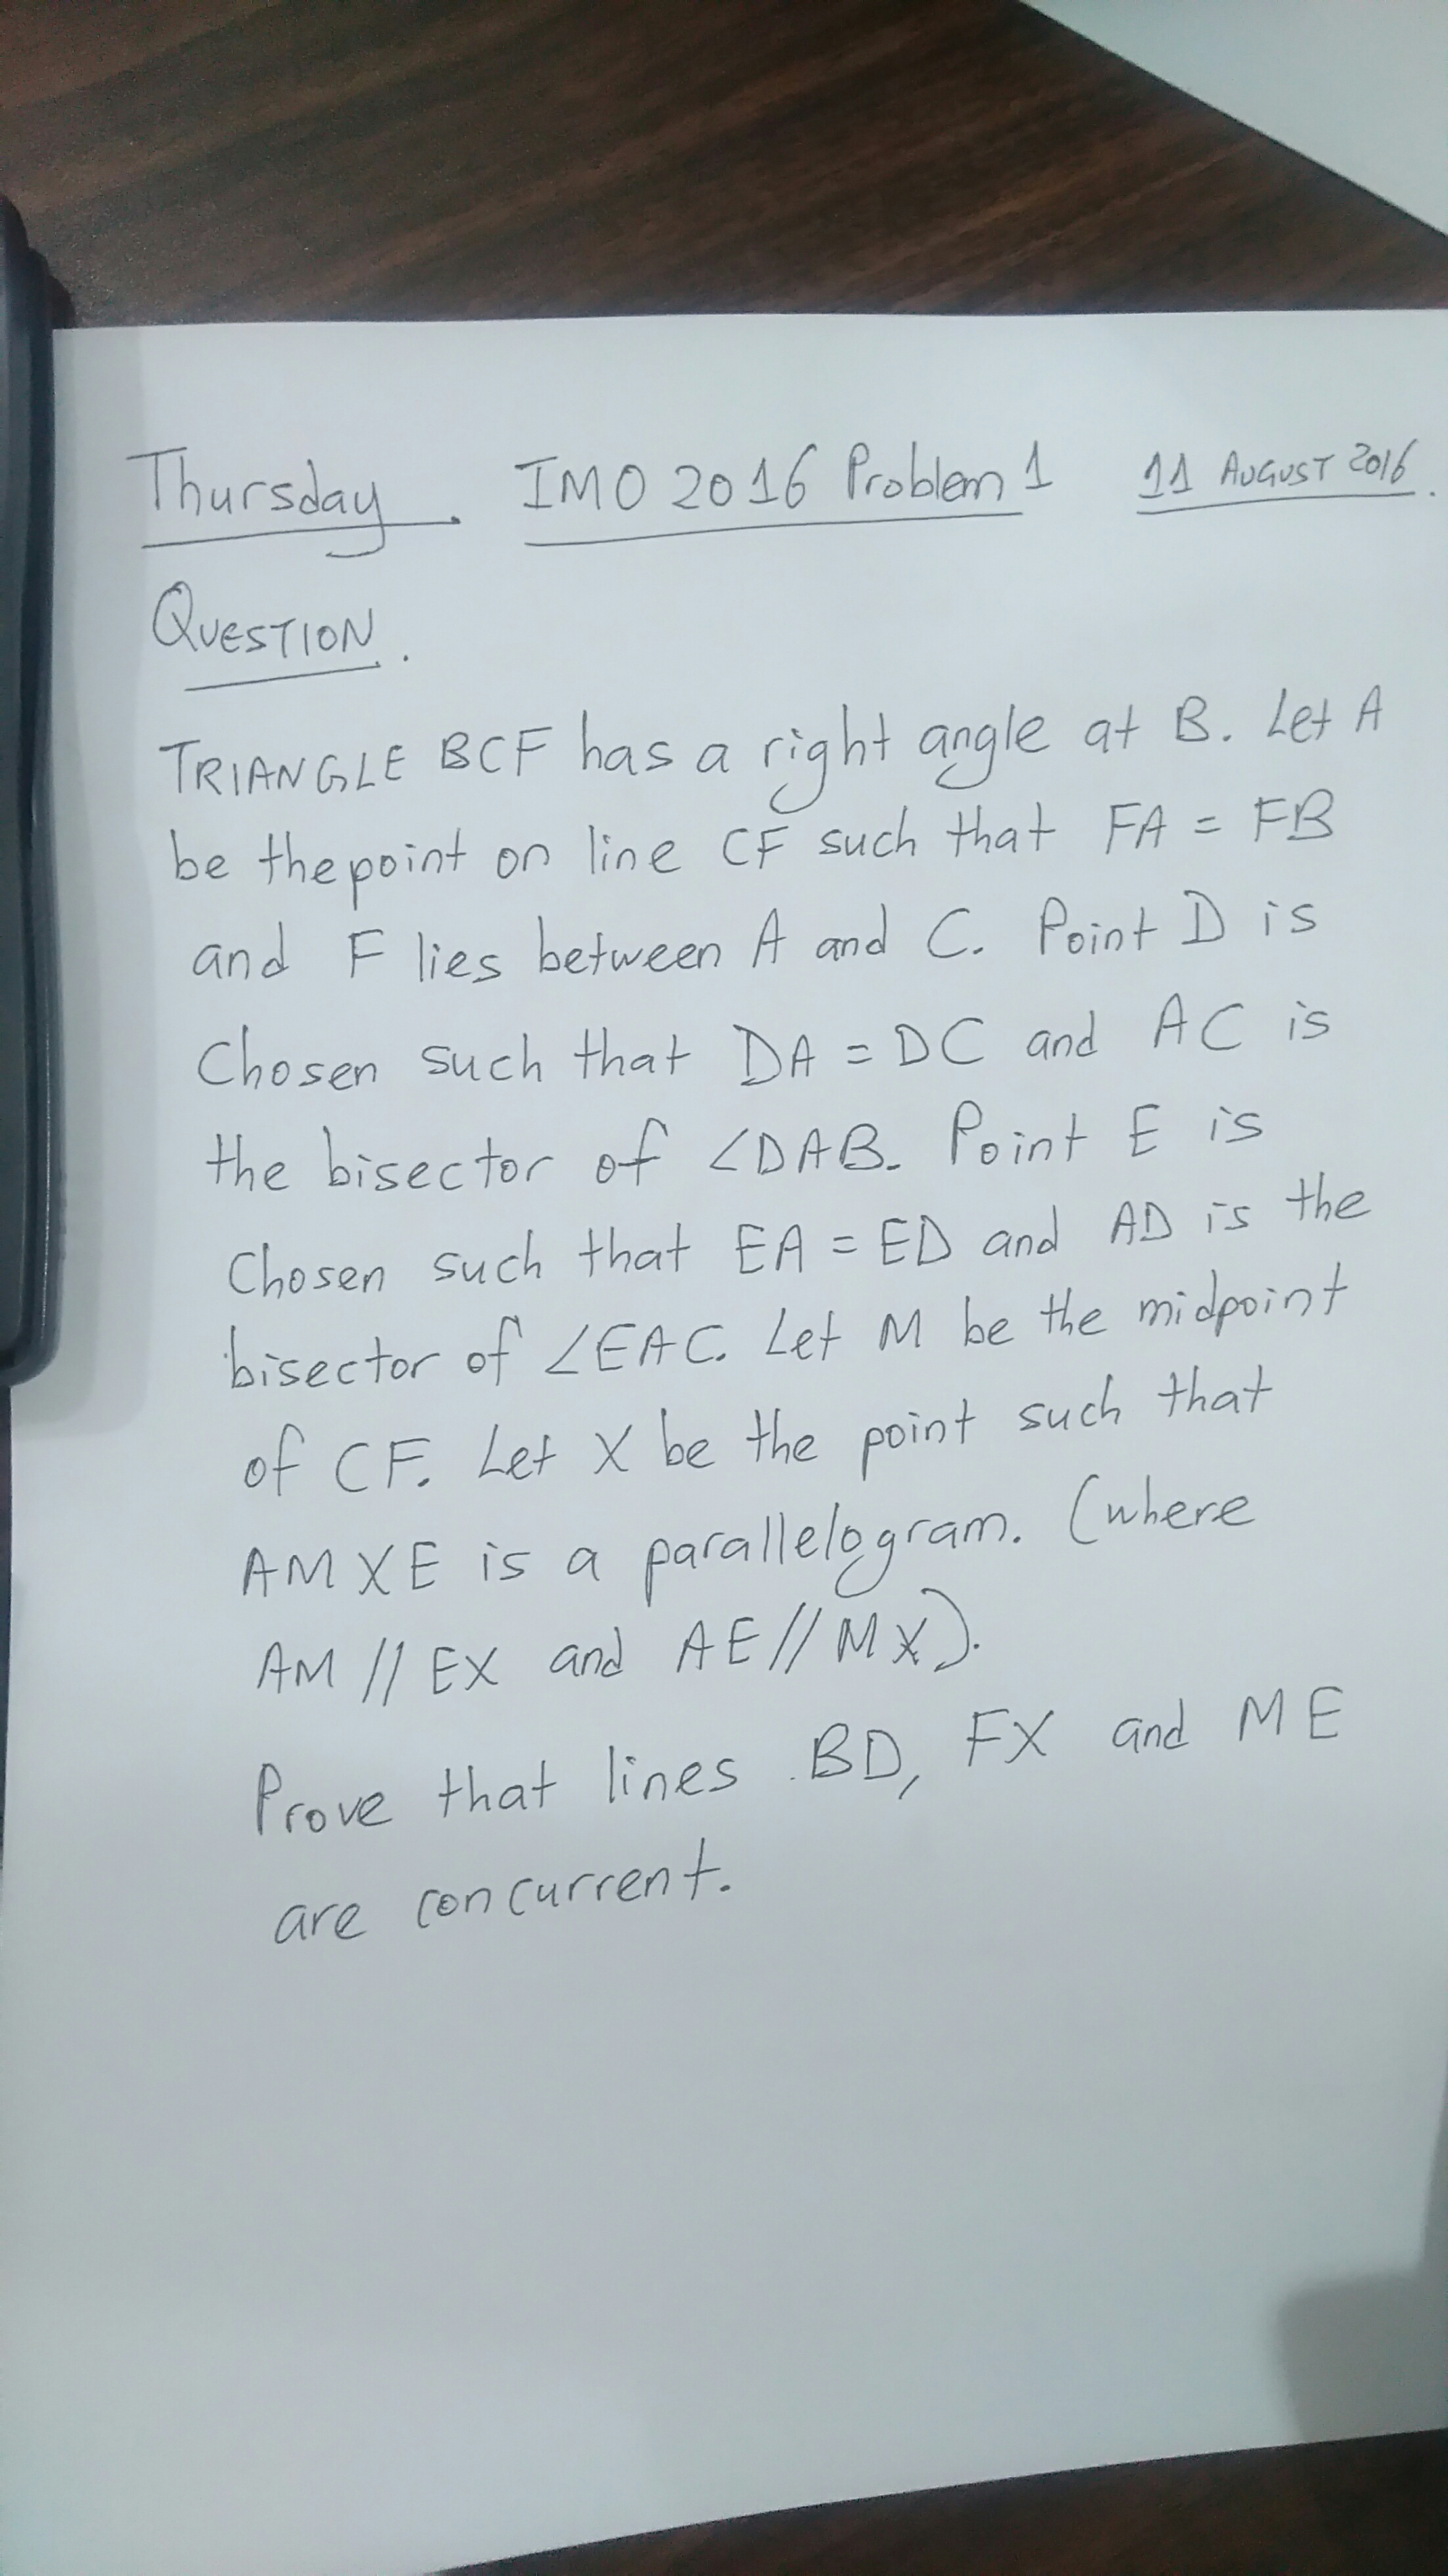 Thursday. IMO 2016 Problem 1 11 AUGUST 2016.
QUESTION.
TRIANGLE BCF has a right angle at B. Let A
be the point on line CF such that FA = FB
and F lies between A and C. Point D is
Chosen such that DA = DC and AC is
the bisector of ∠DAB. Point E is
Chosen such that EA = ED and AD is the
bisector of ∠EAC. Let M be the midpoint
of CF. Let X be the point such that
AMXE is a parallelogram. (where
AM // EX and AE // MX).
Prove that lines BD, FX and ME
are concurrent.